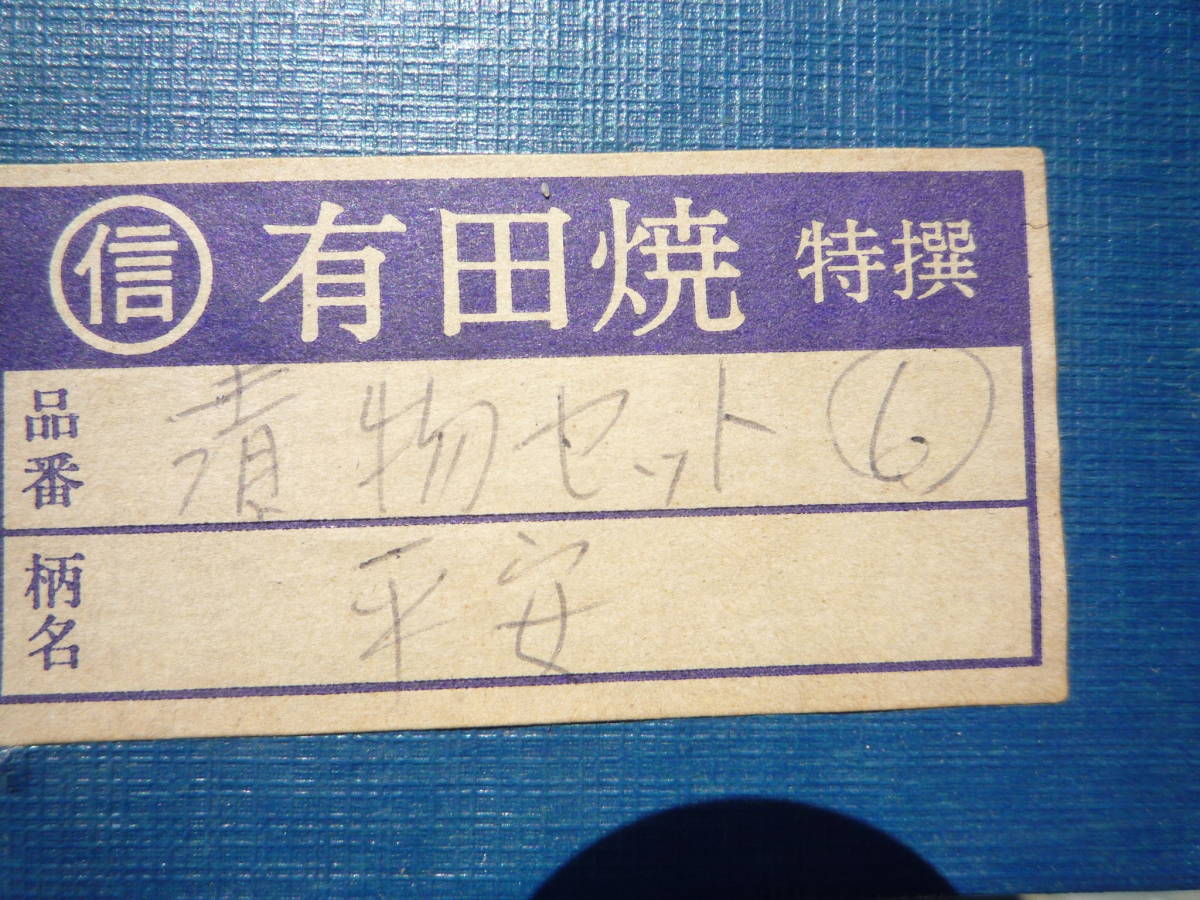 信 有田焼 特撰
品番 漬物セット ⑥
柄名 平安